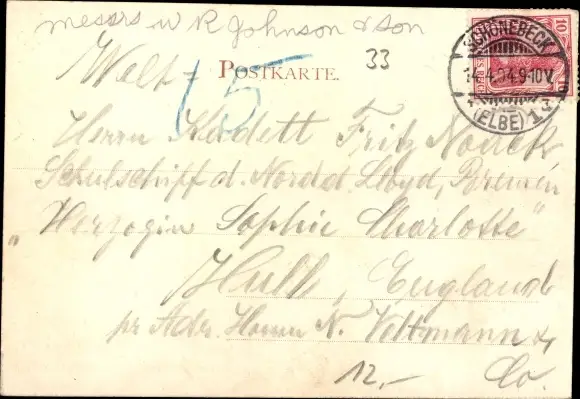 messrs W R Johnson & Son
33
Welt=
POSTKARTE.
15
SCHÖNEBECK
14.4.04.9-10V.
(ELBE) 1 a
10
Herrn Kadett Fritz
Schulschiff d. Nordd. Lloyd, Bremen
"Herzogin Sophie Charlotte"
Hull, England
pr Adr. Herrn N. Veltmann &
Co.
12,-